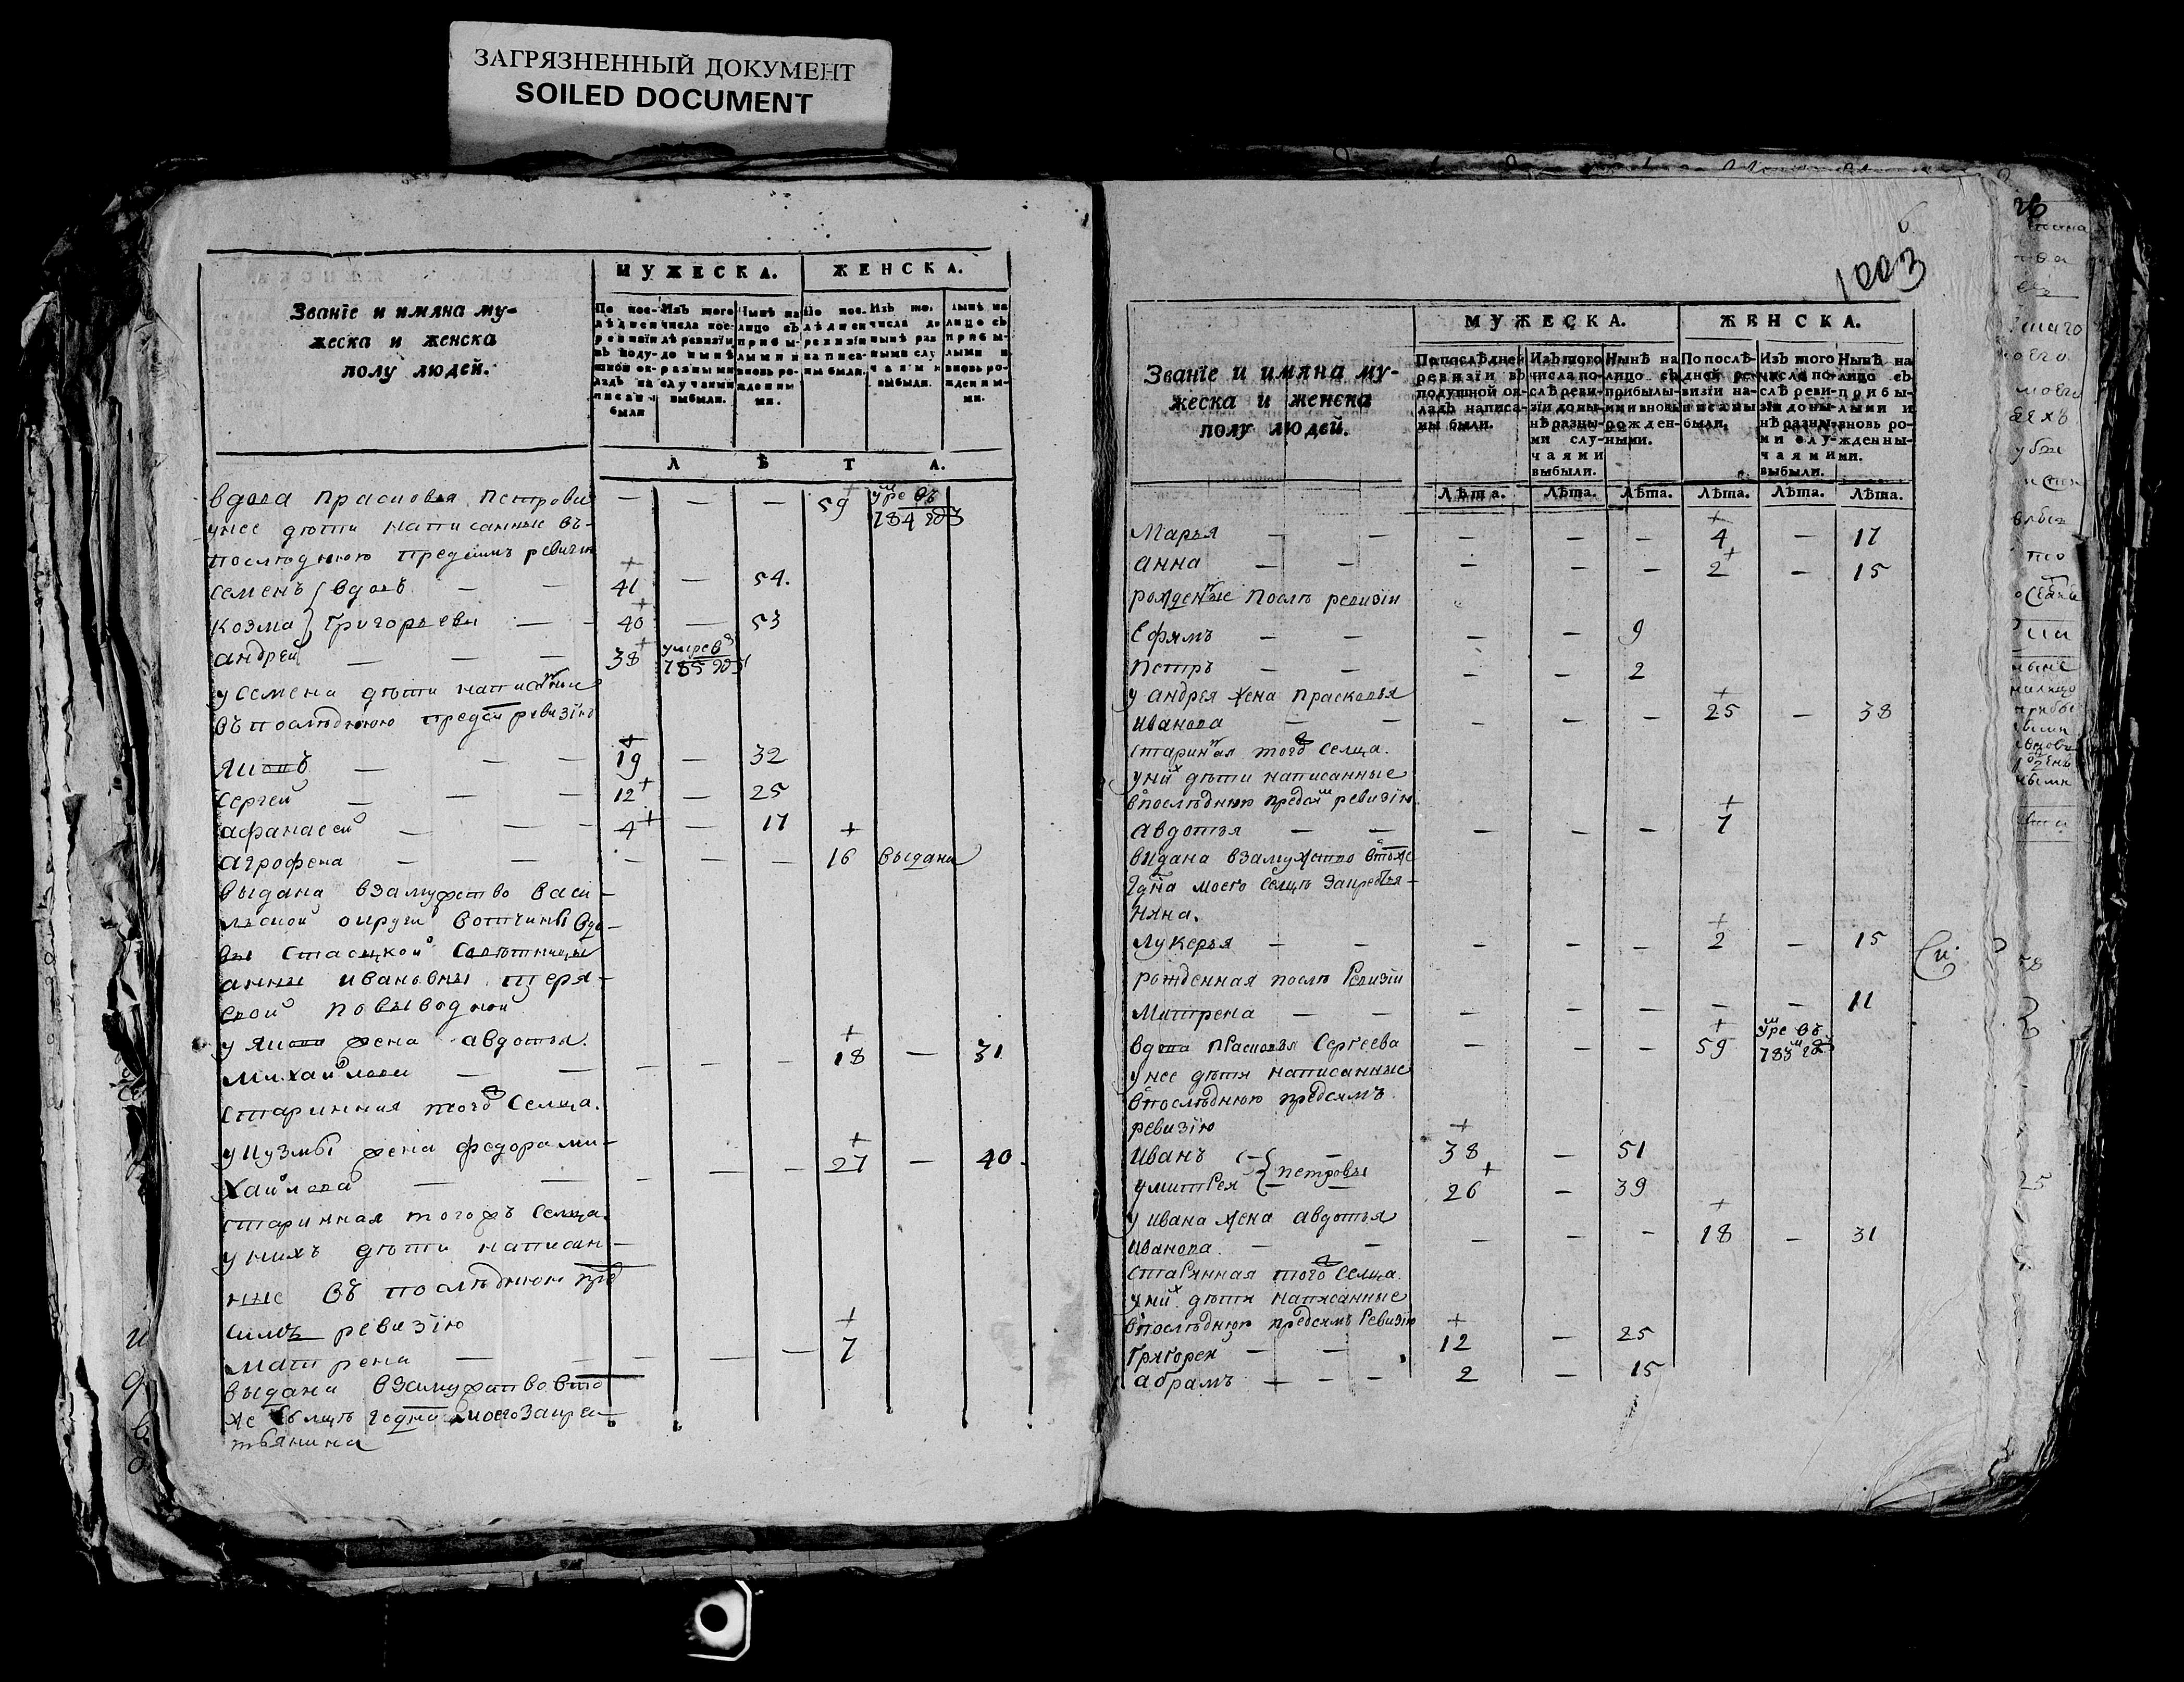 ЗАГРЯЗНЕННЫЙ ДОКУМЕНТ
SOILED DOCUMENT
МУЖЕСКА. ЖЕНСКА.
Званїе и имяна му-
жеска и женска
полу людей.
По пос-
лѣдней
ревизїи
въ поду-
шной ок-
ладъ на
писаны
были
Изъ того
числа пос-
лѣ ревизїи
до нынѣ
разными
случаями
выбыли.
Нынѣ на
лицо съ
прибы-
лыми и
вновь ро-
жденны
ми.
По пос-
лѣдней
ревизїи
написа-
ны были.
Изъ то.
числа до
нынѣ раз
ными слу
чаями
выбыли.
Нынѣ на
лицо съ
прибы-
лыми и
вновь ро-
жденны-
ми.
Л Ѣ Т А.
вдова прасковья петрова — — — 59 умре въ 784 год
у нее дѣти написанные въ-
послѣднюю предсимъ ревизїю
семенъ вдовъ — — 41 — 54.
козма григорьевы — — 40 — 53
андрей — — — 38 умре в 785 год
у семена дѣти написанные
въ послѣднюю предси ревизїю
яковъ — — — 19 — 32
сергей — — — 12 — 25
афанасей — — — 4 — 17
агрофена — — — — — — 16 выдана
выдана взамужство васи-
льской округи вотчины вдо-
вы статской советницы
анны ивановны
повыводной
у якова жена авдотья.
михайлова — — — — — 18 — 31
старинная того селца.
у кузмы жена федора ми-
хайлова — — — — — 27 — 40.
старинная тогожъ селца.
у нихъ дѣти написан-
ные въ послѣднюю пред
симъ ревизїю
матрена — — — — — 7
выдана взамужство вто
же селцѣ моего закрес
тьянина
6
1003
МУЖЕСКА. ЖЕНСКА.
Званїе и имяна му-
жеска и женска
полу людей.
По послѣдней
ревизїи въ
подушной ок-
ладъ написа-
ны были.
Изъ того
числа по-
слѣ реви-
зїи до ны-
нѣ разны-
ми слу-
чаями
выбыли.
Нынѣ на
лицо съ
прибылы-
ми и вновь
рожден-
ными.
По послѣ-
дней ре-
визїи на-
писаны
были.
Изъ того
числа по-
слѣ реви-
зїи до ны-
нѣ разны-
ми слу-
чаями
выбыли.
Нынѣ на
лицо съ
прибы-
лыми и
вновь ро-
жденны-
ми.
Лѣта. Лѣта. Лѣта. Лѣта. Лѣта. Лѣта.
Марья — — — — — 4 — 17
анна — — — — — 2 — 15
рожденные послѣ ревизїи
Ефимъ — — — — 9
петръ — — — — 2
у андрея жена прасковья
иванова — — — — — 25 — 38
старинная того селца.
у них дѣти написанные
в послѣднюю предсим ревизїю
авдотья — — — — — 7
выдана взамужство втомже
моего селцѣ закрестья-
нина.
лукерья — — — — — 2 — 15
рожденная послѣ ревизїи
Матрена — — — — — — — 11
вдова прасковья Сергеева — — — 59 умре въ 783 год
у нее дѣти написанные
в послѣднюю предсимъ
ревизїю
иванъ — — 38 — 51
умитрея петровы 26 — 39
у ивана жена авдотья
иванова. — — — — — 18 — 31
старинная того селца.
у них дѣти написанные
в послѣднюю предсимъ ревизїю
григорей — — 12 — 25
абрамъ — — — 2 — 15